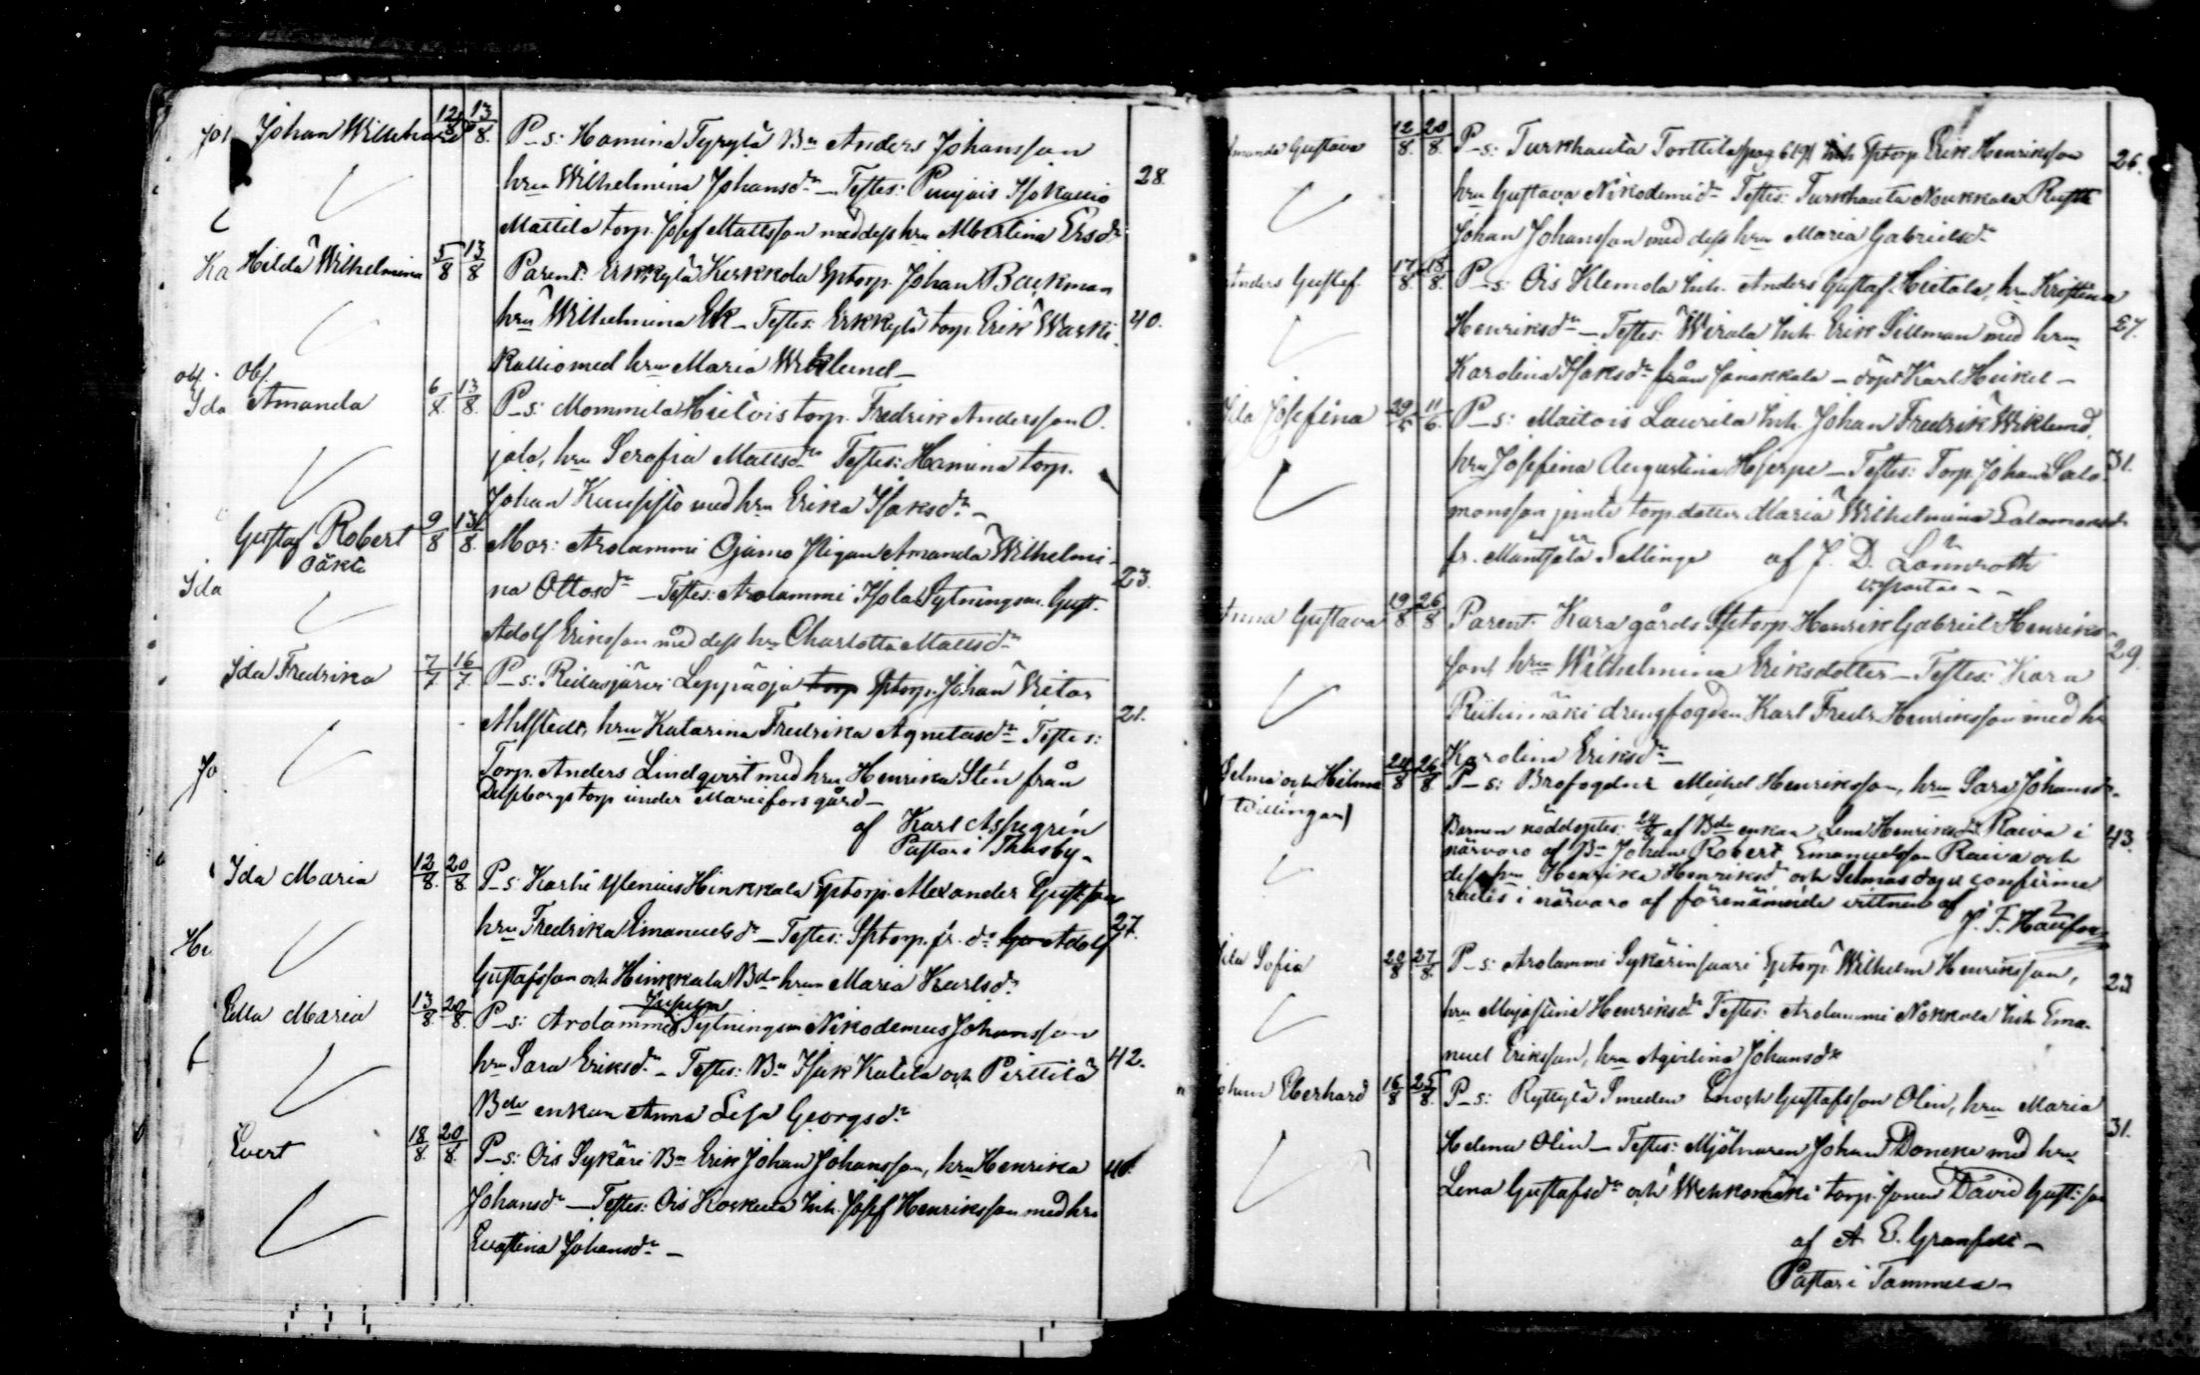 Johan Wilhehard 12/8 13/8. P_s: Hamina Tyrylä Bn Anders Johansson
hru Wilhelmina Johansdr — Testes: Puujais Isokallio 28.
Mattila torp. Josef Mattsson med dess hru Albertina Ersdr
Hilda Wilhelmina 5/8 13/8 Parent: Erkkylä Kerkkola Sptorp. Johan Backman
hru Wilhelmina Ek — Testes: Erkkylä torp Erik Warki- 40.
kallio med hru Maria Wiklund —
Obs.
Amanda 6/8. 13/8. P_s: Mommila Hietois torp. Fredrik Andersson O-
jala, hru Serafia Mattsdr Testes: Hamina torp.
Johan Kuusisto med hru Erika Isaksdr —
Gustaf Robert 9/8 13/8. Mor: Arolammi Ojamo Pigan Amanda Wilhelmi-
oäkta
na Ottosdr — Testes: Arolammi Isola Sytningsm. Gust. 23.
Adolf Eriksson med dess hru Charlotta Mattsdr
Ida Fredrika 7/7 16/7. P_s: Ridasjärvi Leppäoja torp Sptorp. Johan Victor
Ahlstedt, hru Katarina Fredrika Agnetasdr Testes: 21.
Torp. Anders Lindqvist med hru Henrika Sten från
torp under Mariefors gård —
af Karl Aspegrén
Pastor i Thusby —
Ida Maria 12/8. 20/8. P_s: Karhi Ylenius Hinkkala Sptorp. Alexander Gustfson
hru Fredrika Emanuelsdr — Testes: Sptorp. fr. do Adolf 27.
Gustafsson och Hinkkala Bde hrun Maria Karlsdr
Ella Maria 13/8. 20/8. P_s: Arolammi Sytningsm Nikodemus Johansson
hru Sara Eriksdr — Testes: Bn Isak Katila och Pirttilä 42.
Bde enkan Anna Lisa Georgsdr
Evert 18/8. 20/8. P_s: Ois Sykäri Bn Erik Johan Johansson, hru Henrika
Johansdr — Testes: Ois Inh. Josef Henriksson med hru
Evastina Johansdr —
Amanda Gustava 12/8. 20/8. P_s: Turkhauta Torttila pag 619½ Inh Sptorp Erik Henriksson 26.
hru Gustava Nikodemidr Testes: Turkhauta Noukkala Rusth
Johan Johansson med dess hru Maria Gabrielsdr
Anders Gustaf. 17/8 18/8. P_s: Ois Klemola Inh. Anders Gustaf Hietala, hru Kristina
Henriksdr — Testes: Wirala Inh. Erik Sillman med hru 27.
Karolina Isaksdr från Janakkala — döpt Karl Heikel —
Ida Josefina 29/5 11/6. P_s: Maitois Laurila Inh. Johan Fredrik Wiklund,
hru Josefina Augustina Hjerpe — Testes: Torp. Johan Salo- 31.
monsson jemte torp.dotter Maria Wilhelmina Salomonsdr
fr. Mäntsälä Sellinge af J. D. Lönnroth
v.pastor —
Anna Gustava 19/8 26/8 Parent: Kara gårds Sptorp. Henrik Gabriel Henriks-
son, hru Wilhelmina Eriksdotter — Testes: Kara 29.
Riihimäki drengfogden Karl Fredr. Henriksson med hr
Karolina Eriksdr —
Selma och Hilma 24/8 26/8 P_s: Brofogden Michel Henriksson, hru Sara Johansdr
(tvillingar)
Barnen nöddöptes 24/8 af Bde enkan Lena Henriksdr Raiva i 43.
närvaro af Bn Johan Robert Emanuelsson Raiva och
dess hru Henrika Henriksdr och Selmas dop confirme-
rades i närvaro af förenämnde vittnen af
Sofia 20/8 27/8. P_s: Arolammi Sykärinsaari Sptorp. Wilhelm Henriksson, 23
hru Majastina Henriksdr Testes: Arolammi Nokkala Inh Ema-
nuel Eriksson, hru Agvilina Johansdr
Johan Eberhard 16/8 25/8. P_s: Ryttylä Smeden Enoch Gustafsson Olin, hru Maria
Helena Olin — Testes: Mjölnaren Johan Doneka med hru 31.
Lena Gustafsdr och Wehkomäki torp.sonen David Gustfson
af A. E. Granfelt —
Pastor i Tammela —